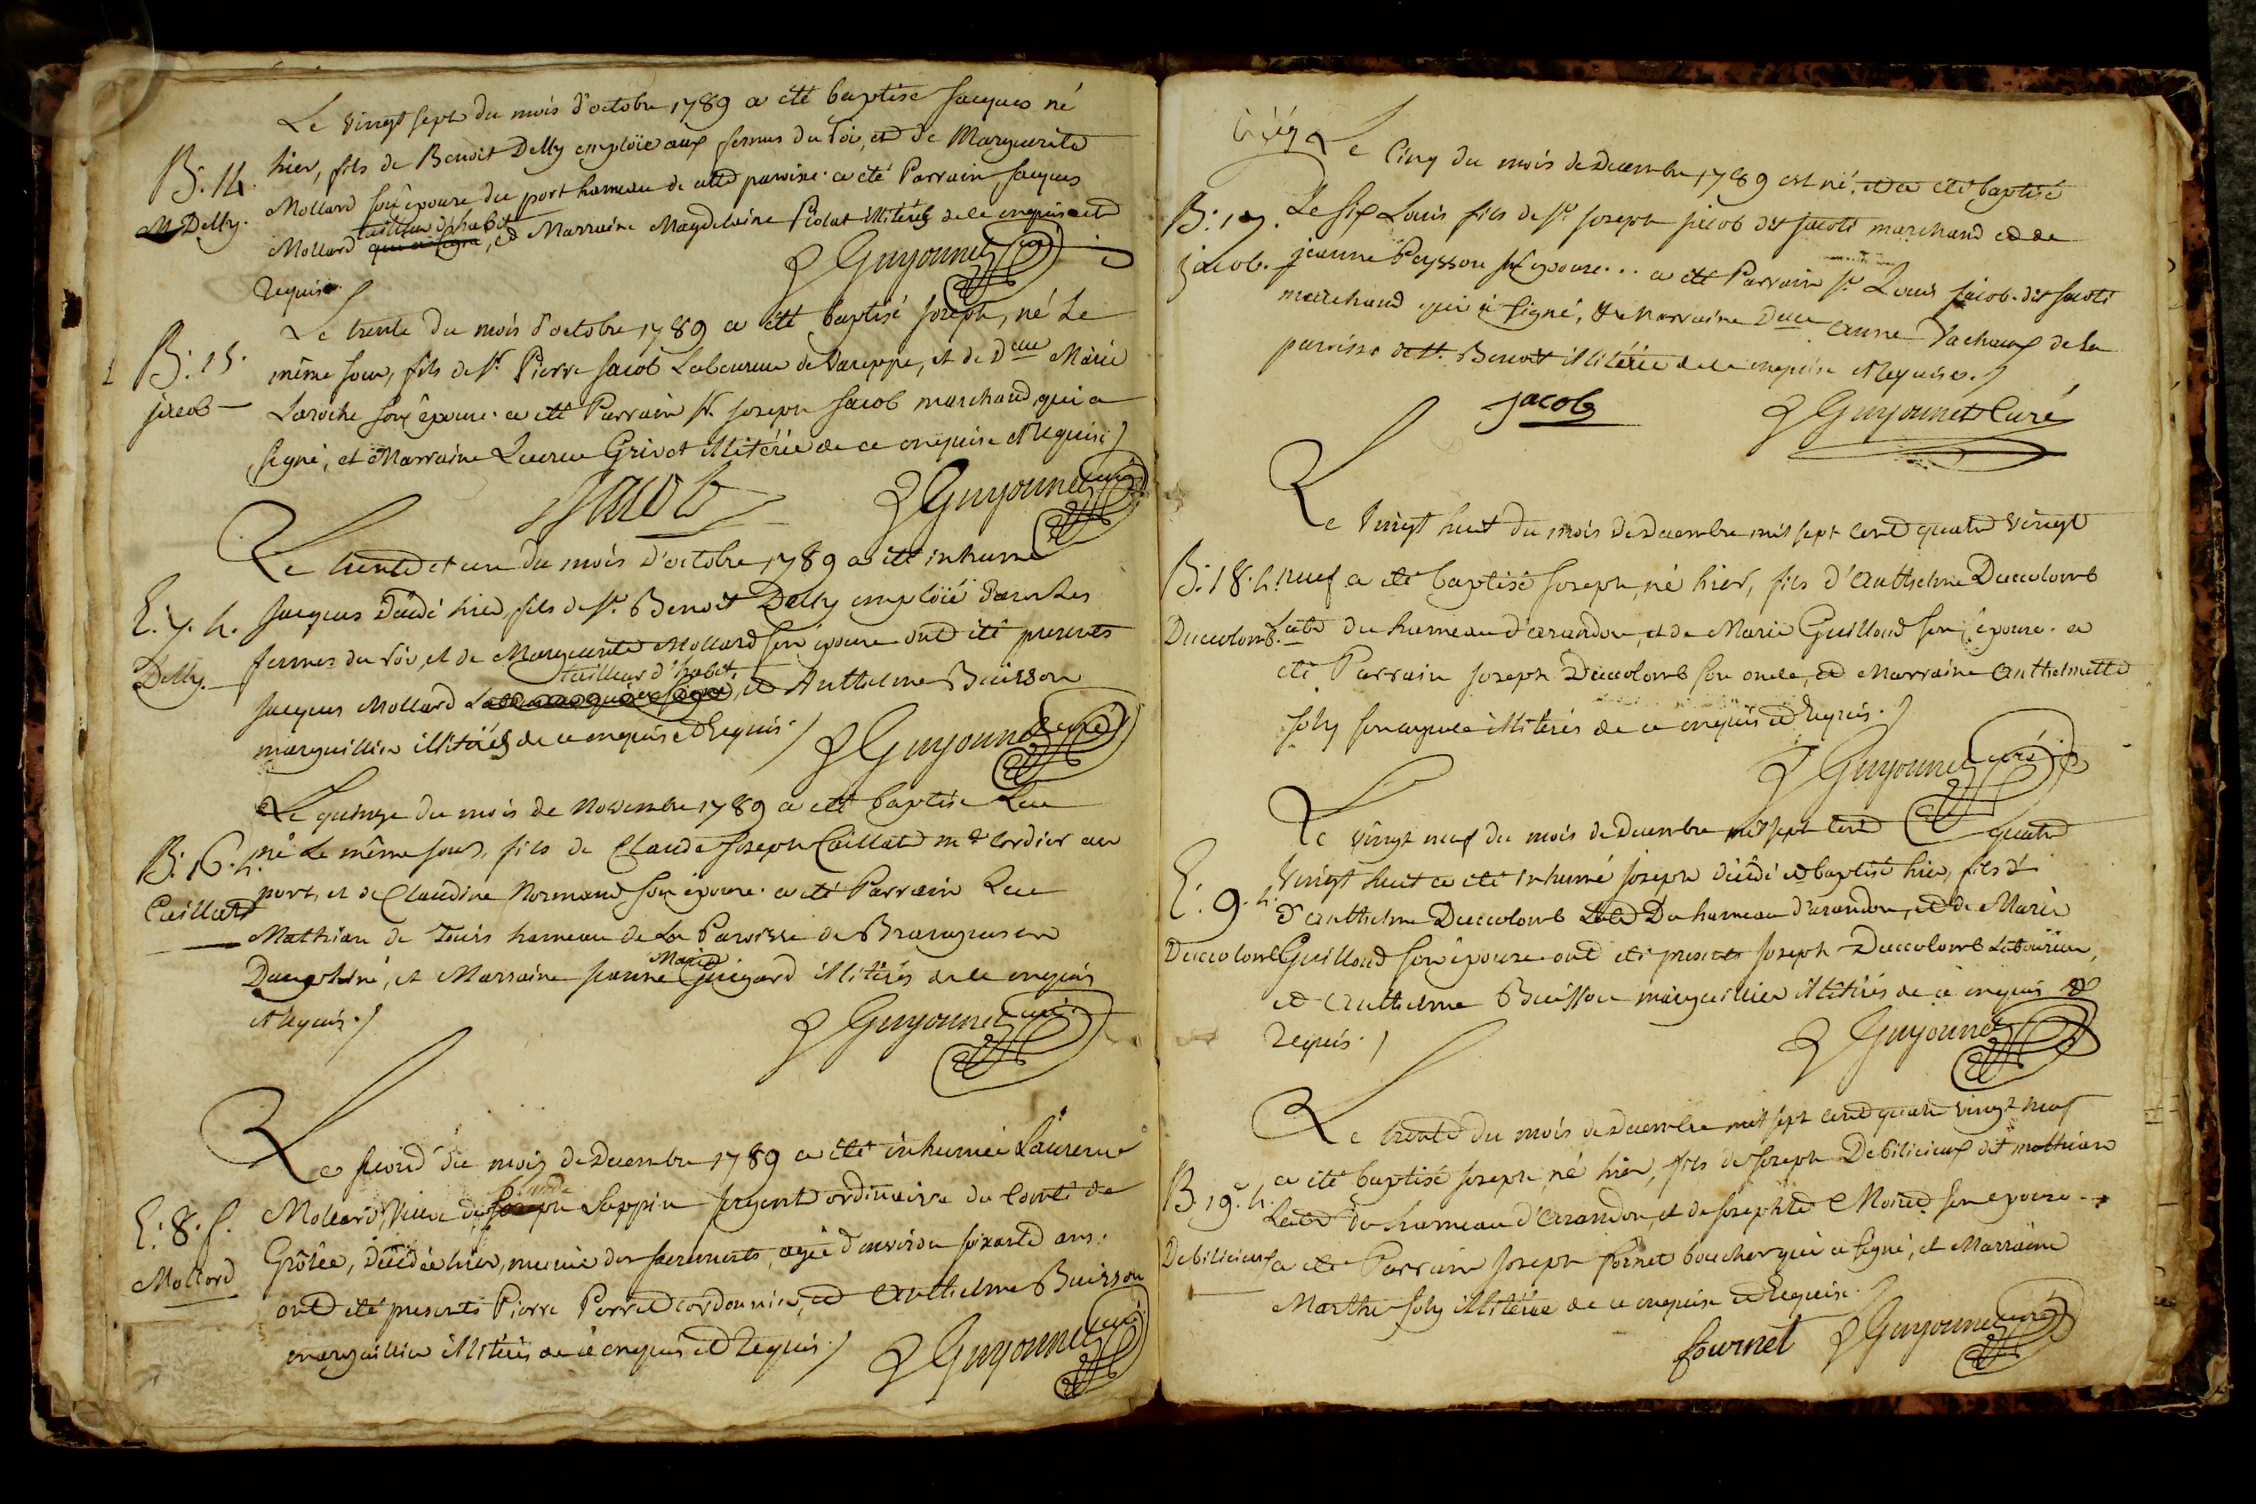 Le vingt sept du mois d'octobre 1789 a été baptisé Jacques né
B. 14. hier, fils de Benoit Delly emploïé aux fermes du roi, et de Marguerite
M Delly. Mollard son épouse du port hameau de cette paroisse. a été Parrain Jacques
tailleur d'habit
Mollard qui a signé, et Marraine Magdelaine Piolat illitérés de ce enquis et
requis.
Guyonnet curé
Le trente du mois d'octobre 1789 a été baptisé Joseph, né Le
B. 15. même jour, fils de Sr. Pierre Jacob Laboureur de Vareppe, et de Dlle Marie
jacob Laroche son épouse. a été Parrain Sr. Joseph Jacob marchand qui a
signé, et Marraine Grivot illitérée de ce enquise et requise
Jacob Guyonnet curé
Le trente et un du mois d'octobre 1789 a été inhumé
E. 7. h. Jacques décédé hier, fils de Sr. Benoit Delly emploïé dans Les
Delly. fermes du roi et de Marguerite Mollard son épouse ont été presents
tailleur d'habit
Jacques Mollard et Anthelme Buisson
marguillier illitérés de ce enquis et requis.
Guyonnet curé
Le quinze du mois de Novembre 1789 a été baptisé Luc
B. 16. h. né Le même jour, fils de Claude Joseph Caillat md. cordier au
Caillat port, et de Claudine Normand son épouse. a été Parrain Luc
Mathian de hameau de La Paroisse de Brangues en
Marie
Dauphiné, et Marraine Jeanne Guigard illitérés de ce enquis
et requis.
Guyonnet curé
Le second du mois de Decembre 1789 a été inhumée Laurence
E. 8. f. Mollard, veuve de Joseph Sappin sergent ordinaire du Comté de
Mollard Grôlée, décédée hier, munie des sacrements, agée d'environ soixante ans.
ont été presents Pierre Perret cordonnier, et Anthelme Buisson
marguillier illitérés de ce enquis et requis.
Guyonnet curé
Le Cinq du mois de Decembre 1789 est né, et a été baptisé
B. 17. Le six Louis fils de Sr. Joseph Jacob dit Jacoti marchand et de
jacob. jeanne Peysson son épouse... a été Parrain Sr. Louis Jacob dit Jacoti
marchand qui a signé, & Marraine Dlle Anne Vachoux de La
paroisse de St. Benoit illitérée de ce enquise et requise.
jacob Guyonnet Curé
Le vingt huit du mois de Decembre mil sept cent quatre vingt
B. 18. h. neuf a été baptisé Joseph, né hier, fils d'Anthelme Duccolomb
Duccolomb. Labr. du hameau d'arandon, et de Marie Guilloud son épouse. a
été Parrain Joseph Duccolomb son oncle, et Marraine Anthelmette
Joly son ayeule illitérés de ce enquis et requis.
Guyonnet curé
Le vingt neuf du mois de Decembre mil sept cent quatre
E. 9. h. vingt huit a été inhumé Joseph décédé et baptisé hier, fils d'
d'Anthelme Duccolomb Labr. Du hameau d'arandon, et de Marie
Duccolomb Guilloud son épouse ont été presents Joseph Duccolomb Laboureur,
et Anthelme Buisson marguillier illitérés de ce enquis &
requis.
Guyonnet curé
Le trente du mois de Decembre mil sept cent quatre vingt neuf
a été baptisé Joseph, né hier, fils de Joseph Debilicieux dit mathian
B. 19. h. Labr. du hameau d'Arandon, et de Josephte Moiret son épouse.
Debilicieux a été Parrain Joseph fornet boucher qui a signé, et Marraine
Marthe Joly illitérée de ce enquise et requise.
fournet Guyonnet curé